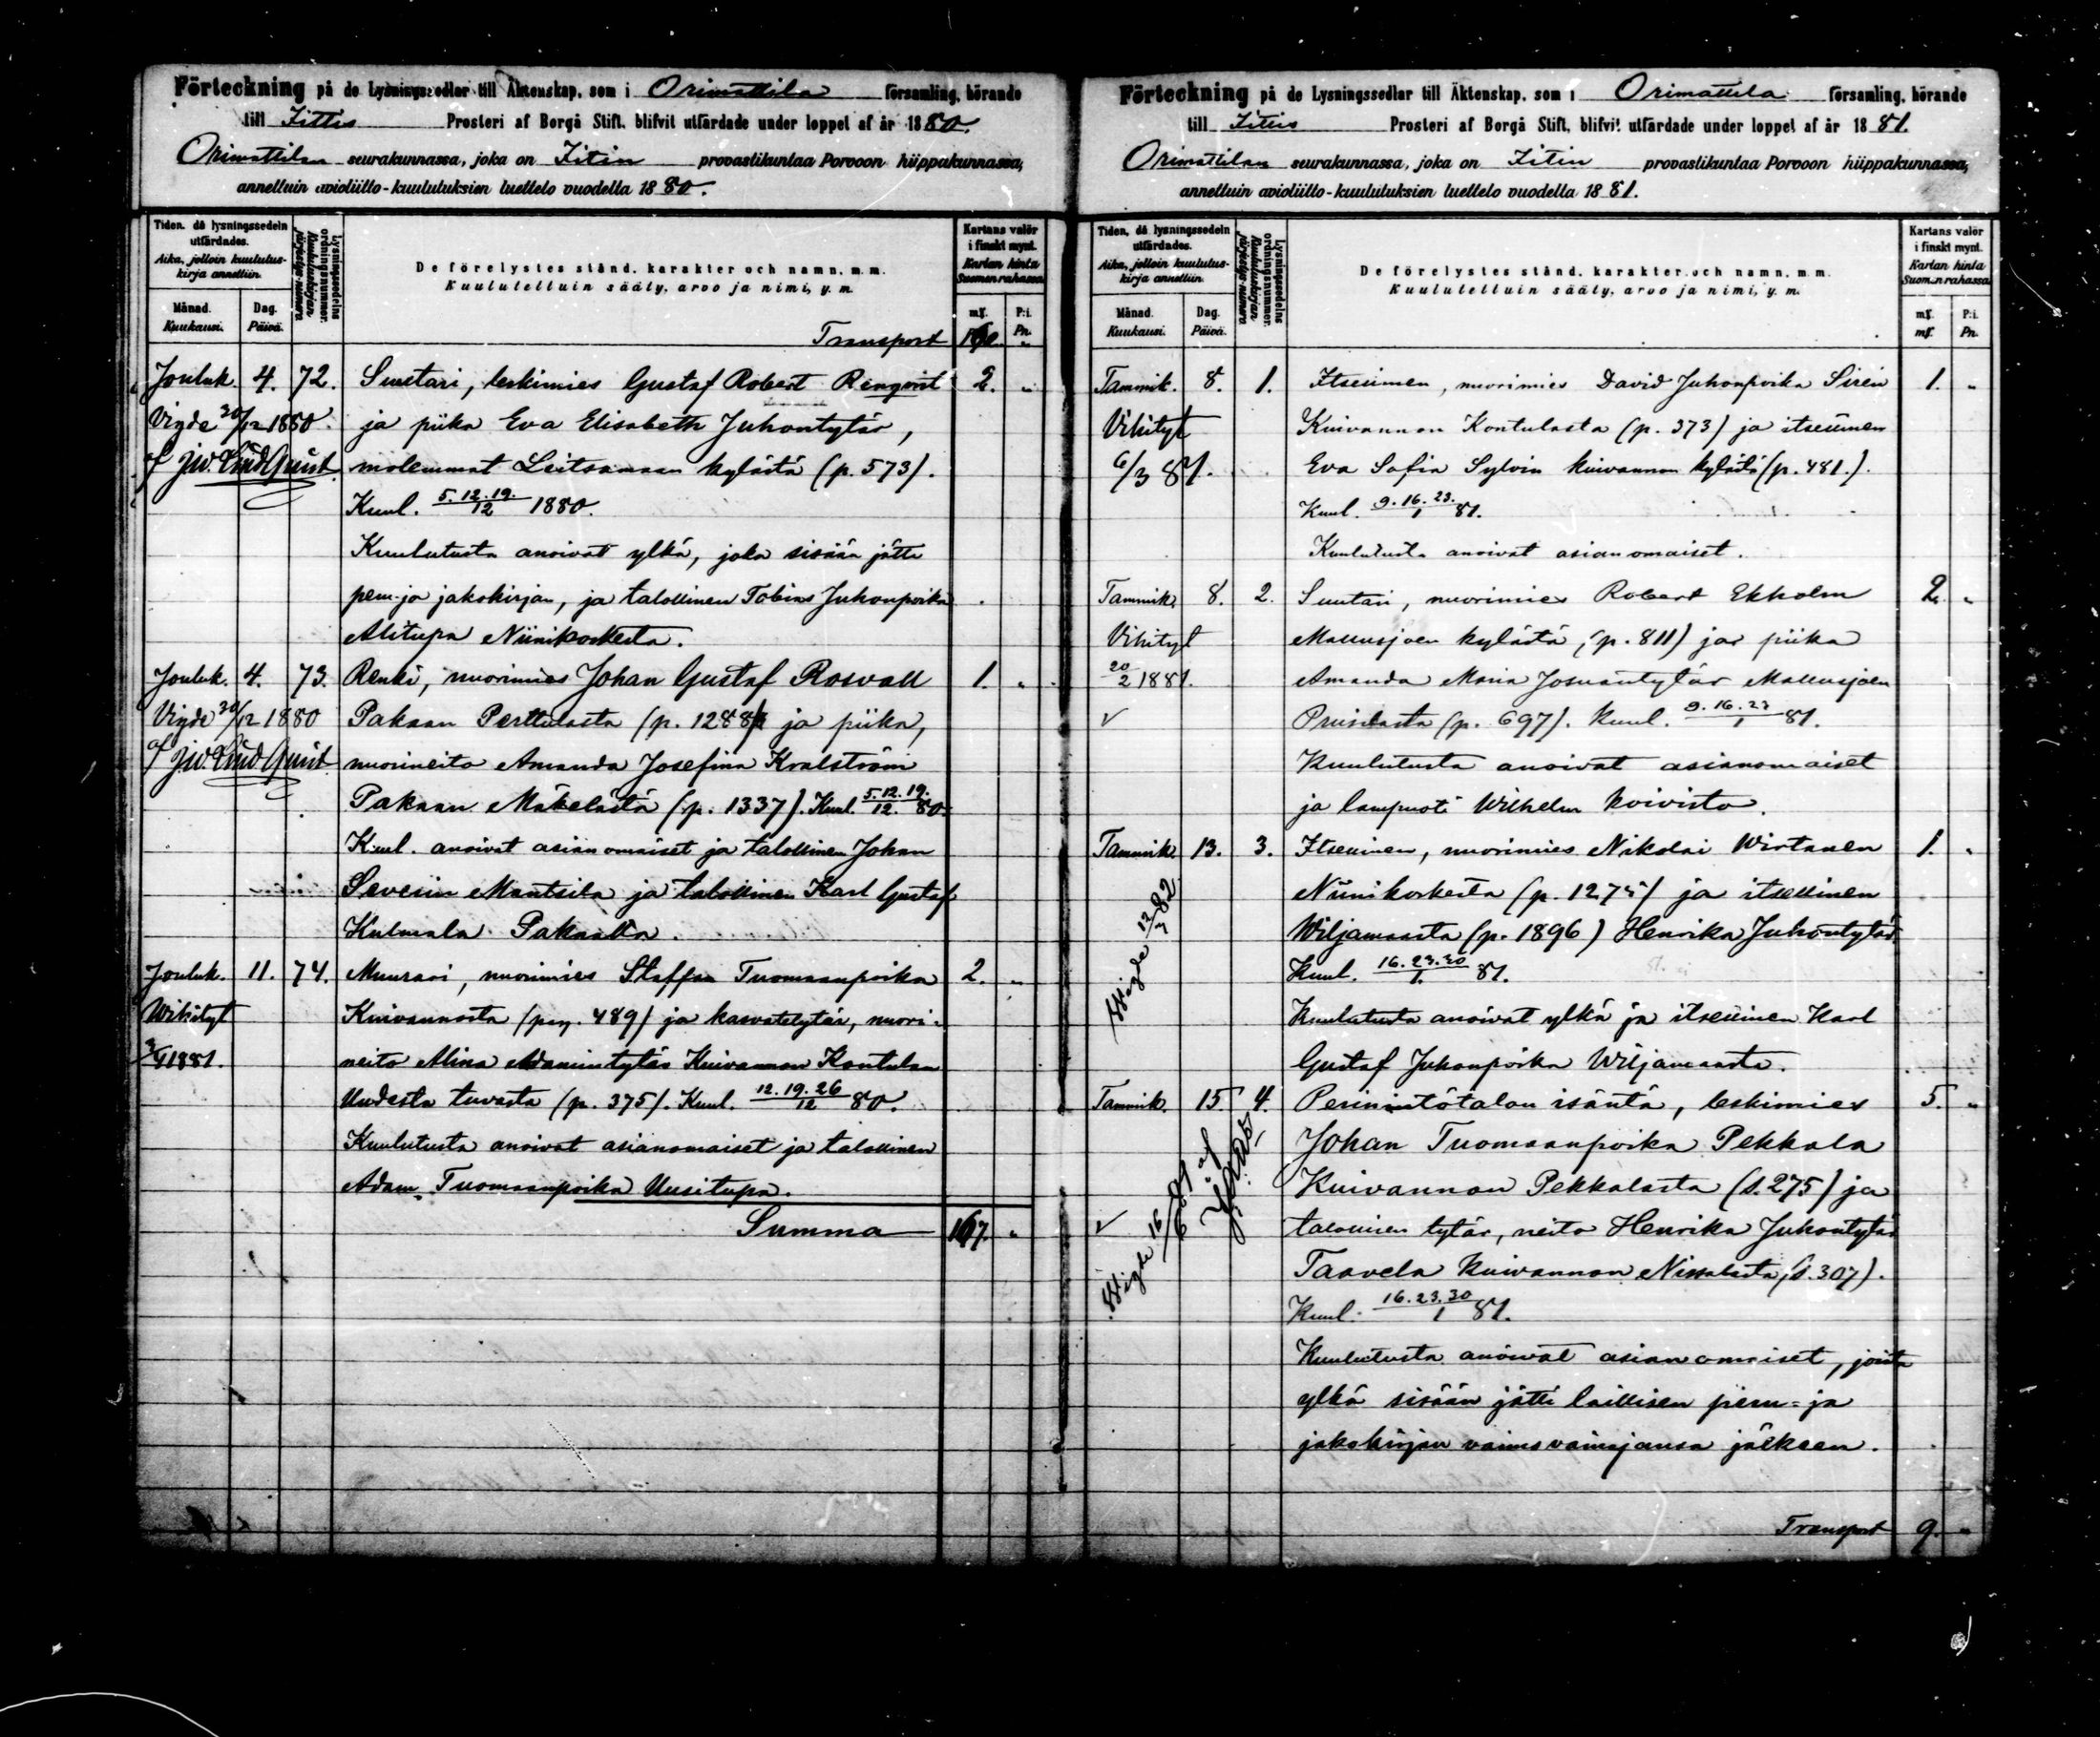 Förteckning på de Lysningssedlar till Äktenskap, som i Orimattila församling, hörande
till Iittis Prosteri af Borgå Stift, blifvit utfärdade under loppet af år 1880.
Orimattilan seurakunnassa, joka on Iitin provastikuntaa Porvoon hiippakunnassa,
annettuin avioliitto-kuulutuksien luettelo vuodella 1880.
Tiden, då lysningssedeln utfärdades.
Aika, jolloin kuulutus-kirja annettiin.
Månad. Kuukausi.
Dag. Päivä.
Lysningssedelns ordningsnummer.
Kuulutuskirjan järjestys-numero
De förelystes stånd, karakter och namn, m. m.
Kuulutelluin sääly, arvo ja nimi, y. m.
Kartans valör i finskt mynt.
Kartan hinta Suomen rahassa
mf. P:i.
Pn.
Transport 160. "
Jouluk. 4. 72. Suutari, leskimies Gustaf Robert Renqvist 2. "
Vigde 30/12 1880. ja piika Eva Elisabeth Juhontytär,
af JW Lindqvist molemmat Leitsamaan kylästä (p. 573).
Kuul. 5.12.19./12 1880.
Kuulutusta anoivat ylkä, joka sisään jätti
peru-ja jakokirjan, ja talollinen Tobias Juhonpoika
Alitupa Niinikoskesta.
Jouluk. 4. 73. Renki, nuorimies Johan Gustaf Rosvall 1. "
Vigde 30/12 1880 Pakaan Perttulasta (p. 1288) ja piika,
af JW Lindqvist nuorineito Amanda Josefina Kralström
Pakaan Mäkelästä (p. 1337). Kuul. 5.12.19./12. 80.
Kuul. anoivat asianomaiset ja talollinen Johan
Severin Mantsila ja talollinen Karl Gustaf
Kulmala Pakaalta.
Jouluk. 11. 74. Muurari, nuorimies Staffan Tuomaanpoika 2. "
Wihityt Kuivannosta (pag. 489) ja kasvatetytär, nuori-
1881. neito Alina Adamintytär Kuivannon Kontulan
Uudesta tuvasta (p. 375). Kuul. 12.19.26/12 80.
Kuulutusta anoivat asianomaiset ja talollinen
Adam Tuomaanpoika Uusitupa.
Summa 167. "
Förteckning på de Lysningssedlar till Äktenskap, som i Orimattila församling, hörande
till Iittis Prosteri af Borgå Stift, blifvit utfärdade under loppet af år 1881.
Orimattilan seurakunnassa, joka on Iitin provastikuntaa Porvoon hiippakunnassa,
annettuin avioliitto-kuulutuksien luettelo vuodella 1881.
Tiden, då lysningssedeln utfärdades.
Aika, jolloin kuulutus-kirja annettiin.
Månad. Kuukausi.
Dag. Päivä.
Lysningssedelns ordningsnummer.
Kuulutuskirjan järjestys-numero
De förelystes stånd, karakter och namn, m. m.
Kuulutelluin sääly, arvo ja nimi, y. m.
Kartans valör i finskt mynt.
Kartan hinta Suomen rahassa
mf. P:i.
mf. Pn.
Tammik. 8. 1. Itsellinen, nuorimies David Juhonpoika Sirén 1. "
Vihityt Kuivannon Kontulasta (p. 373) ja itsellinen
6/3 81. Eva Sofia Sylvin Kuivannon kylästä (p. 481.).
Kuul. 9.16.23./1 81.
Kuulutusta anoivat asianomaiset.
Tammik. 8. 2. Suutari, nuorimies Robert Ekholm 2. "
Vihityt Mallusjoen kylästä, (p. 811) ja piika
20/2 1881. Amanda Maria Josuantytär Mallusjoen
Priiselasta (p. 697). Kuul. 9.16.23/1 81.
Kuulutusta anoivat asianomaiset
ja lampuoti Wilhelm Koivisto.
Tammik. 13. 3. Itsellinen, nuorimies Nikolai Wirtanen 1. "
Niinikoskesta (p. 1275) ja itsellinen
Wiljamaasta (p. 1896) Henrika Juhontytär.
Kuul. 16.23.30/1. 81.
Kuulutusta anoivat ylkä ja itsellinen Karl
Gustaf Juhonpoika Wiljamaasta.
Tammik. 15. 4. Perinintötalon isäntä, leskimies 5. "
Johan Tuomaanpoika Pekkala
Kuivannon Pekkalasta (s. 275) ja
talollisen tytär, neito Henrika Juhontytär
Taavela Kuivannon Nissalasta, (s. 307).
Kuul. 16.23.30/1 81.
Kuulutusta anoivat asianomaiset, joista
ylkä sisään jätti laillisen peru- ja
jakokirjan vaimovainajansa jälkeen.
Transport 9. "